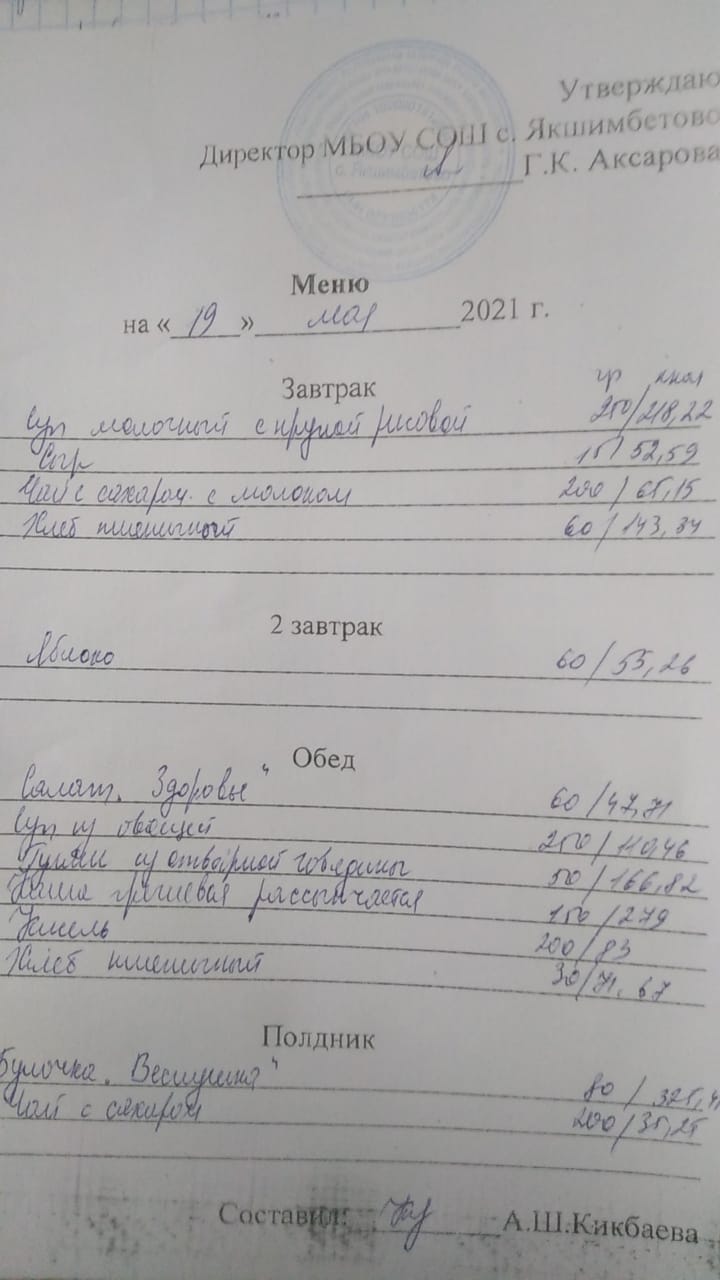 Утверждаю
Директор МБОУ СОШ с. Якшимбетово
Г.К. Аксарова
Меню
на « 19 » мая 2021 г.
гр ккал
Завтрак
Суп молочный с крупой рисовой 250/218,22
Сыр 15/52,59
Чай с сахаром с молоком 200/65,15
Хлеб пшеничный 60/143,34
2 завтрак
Яблоко 60/55,26
Обед
Салат „Здоровье“ 60/47,71
Суп из овощей 250/110,46
Гуляш из отварной говядины 50/166,82
Каша гречневая рассыпчатая 150/279
Кисель 200/83
Хлеб пшеничный 30/71,67
Полдник
Булочка „Веснушка“ 80/325,41
Чай с сахаром 200/35,25
Составил: А.Ш.Кикбаева